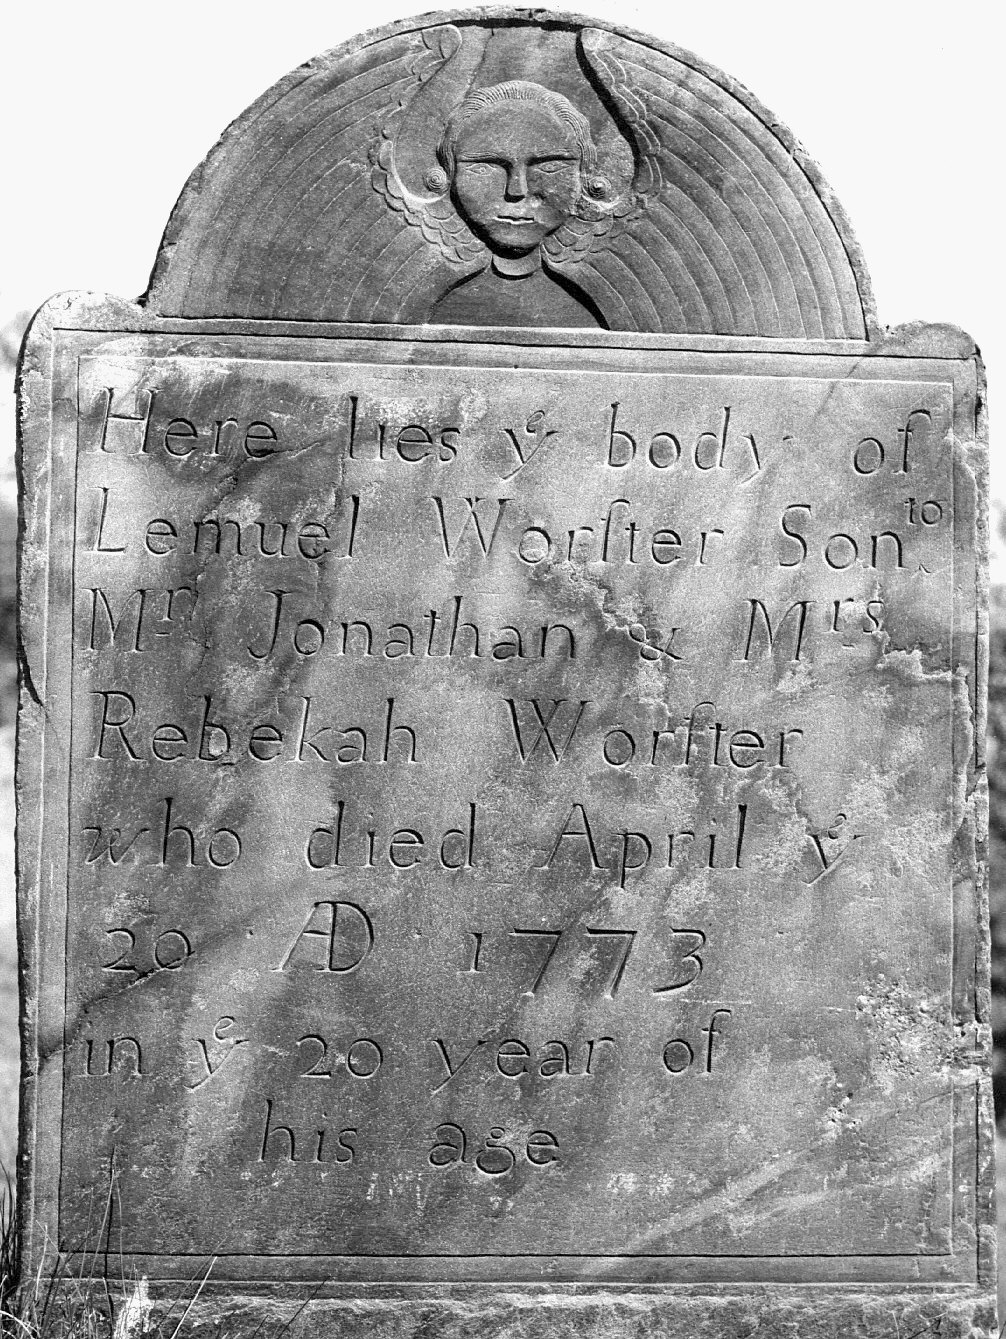 Here lies yͤ body of
Lemuel Worſter Son ᵗᵒ
Mʳ. Jonathan & Mʳˢ.
Rebekah Worſter
who died April yͤ
20 . AD . 1773 .
in yͤ 20 year of
his age